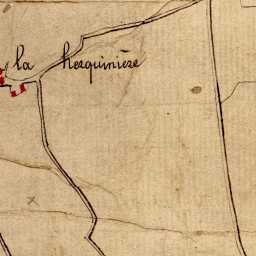 la hezquinière